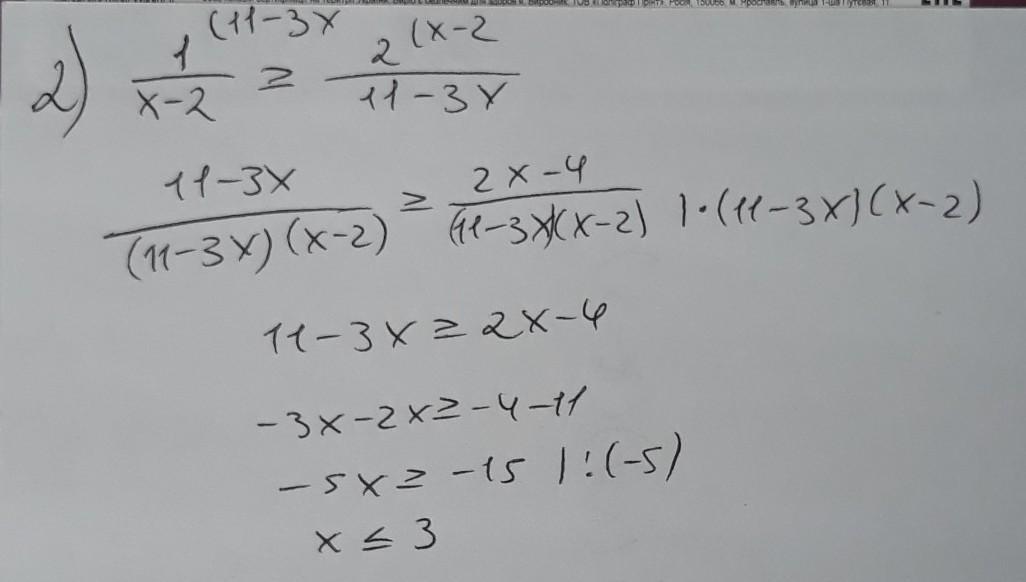 2) 1 (11-3x / x-2 ≥ 2 (x-2 / 11-3x
11-3x / (11-3x)(x-2) ≥ 2x-4 / (11-3x)(x-2) | · (11-3x)(x-2)
11-3x ≥ 2x-4
-3x-2x ≥ -4-11
-5x ≥ -15 | : (-5)
x ≤ 3